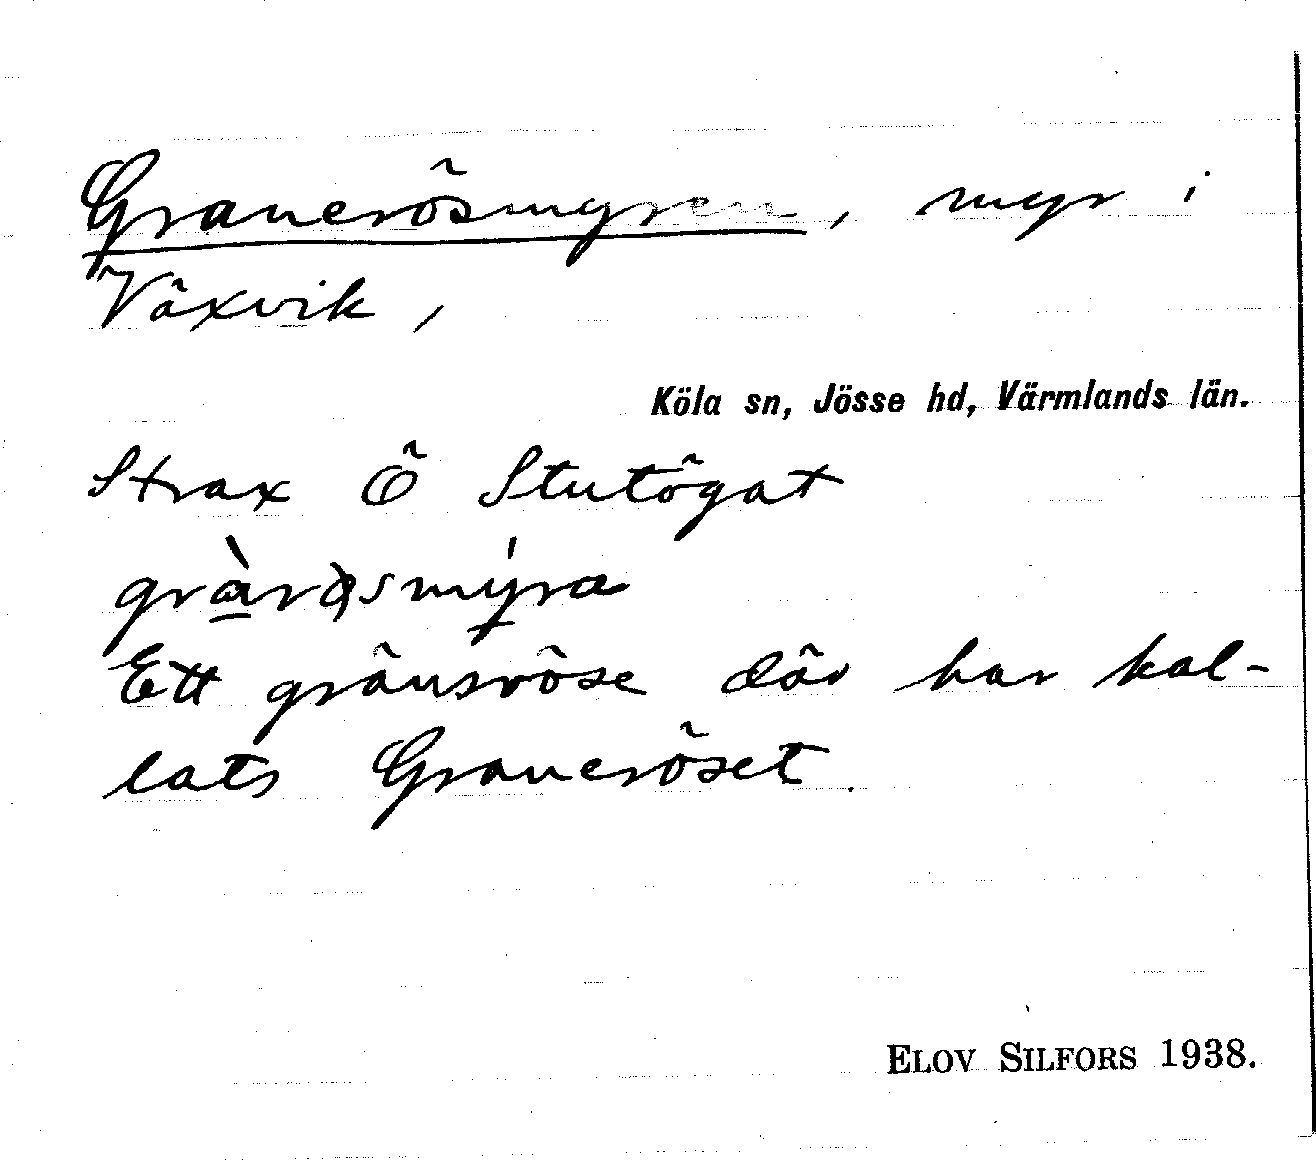 Granerösmyren, myr i
Växvik,
Köla sn, Jösse hd, Värmlands län.
Strax Ö Stutögat
Ett gränsröse där har kal-
lats Graneröset.
ELOV SILFORS 1938.